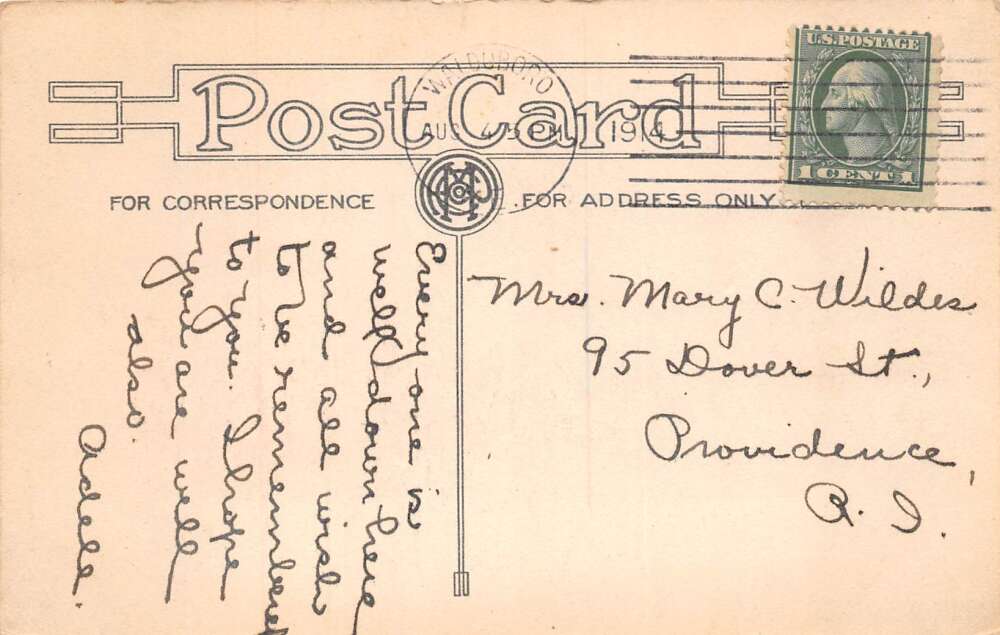 Post Card
WALDOBORO
AUG 4 5 PM 1914
U.S. POSTAGE
1 CENT 1
FOR CORRESPONDENCE
FOR ADDRESS ONLY
Every one is
well down here
and all wish
to be remembered
to you. I hope
you are well
also.
Adele.
Mrs. Mary C. Wildes
95 Dover St.,
Providence,
R. I.